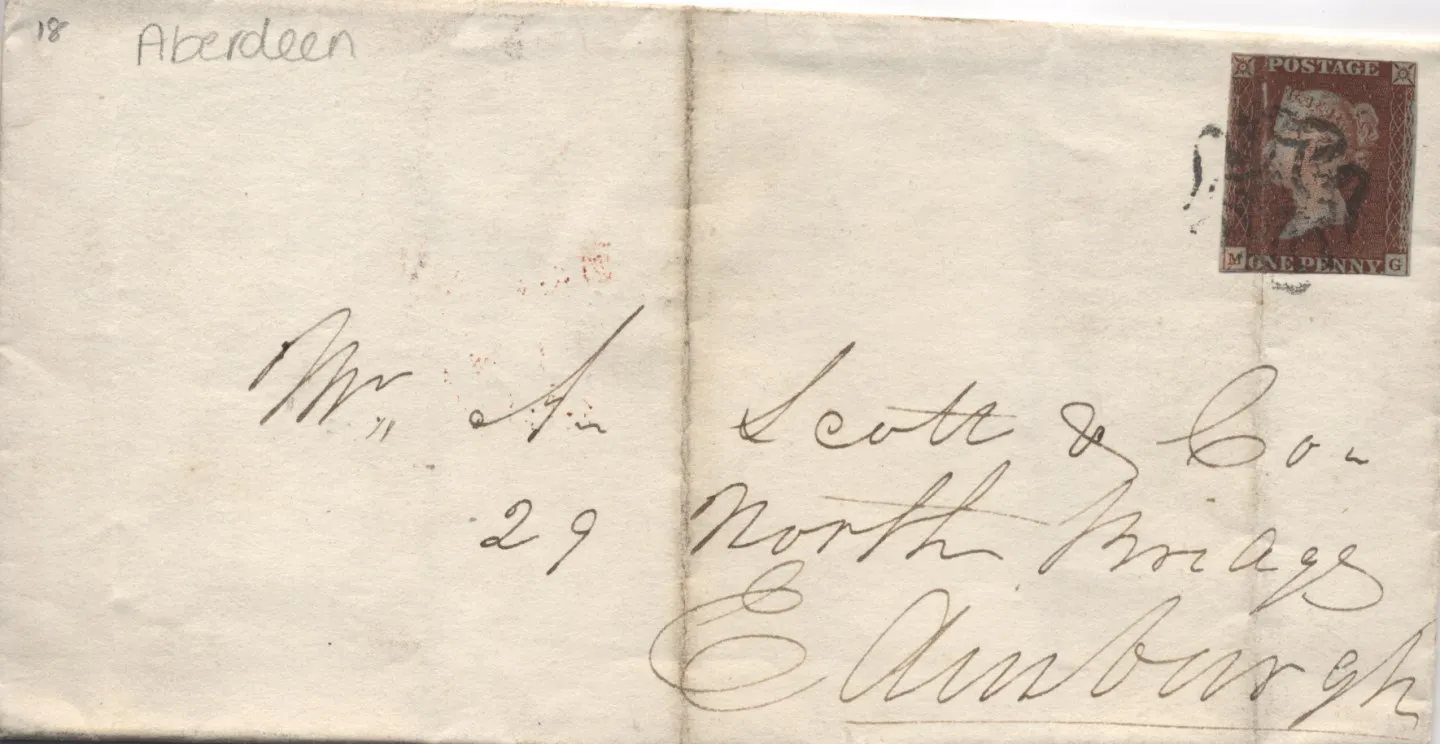 18
Aberdeen
POSTAGE
M ONE PENNY G
Mr,, A. Scott & Co.
29 North Bridge
Edinburgh